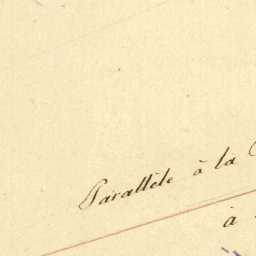 Parallèle à la
à